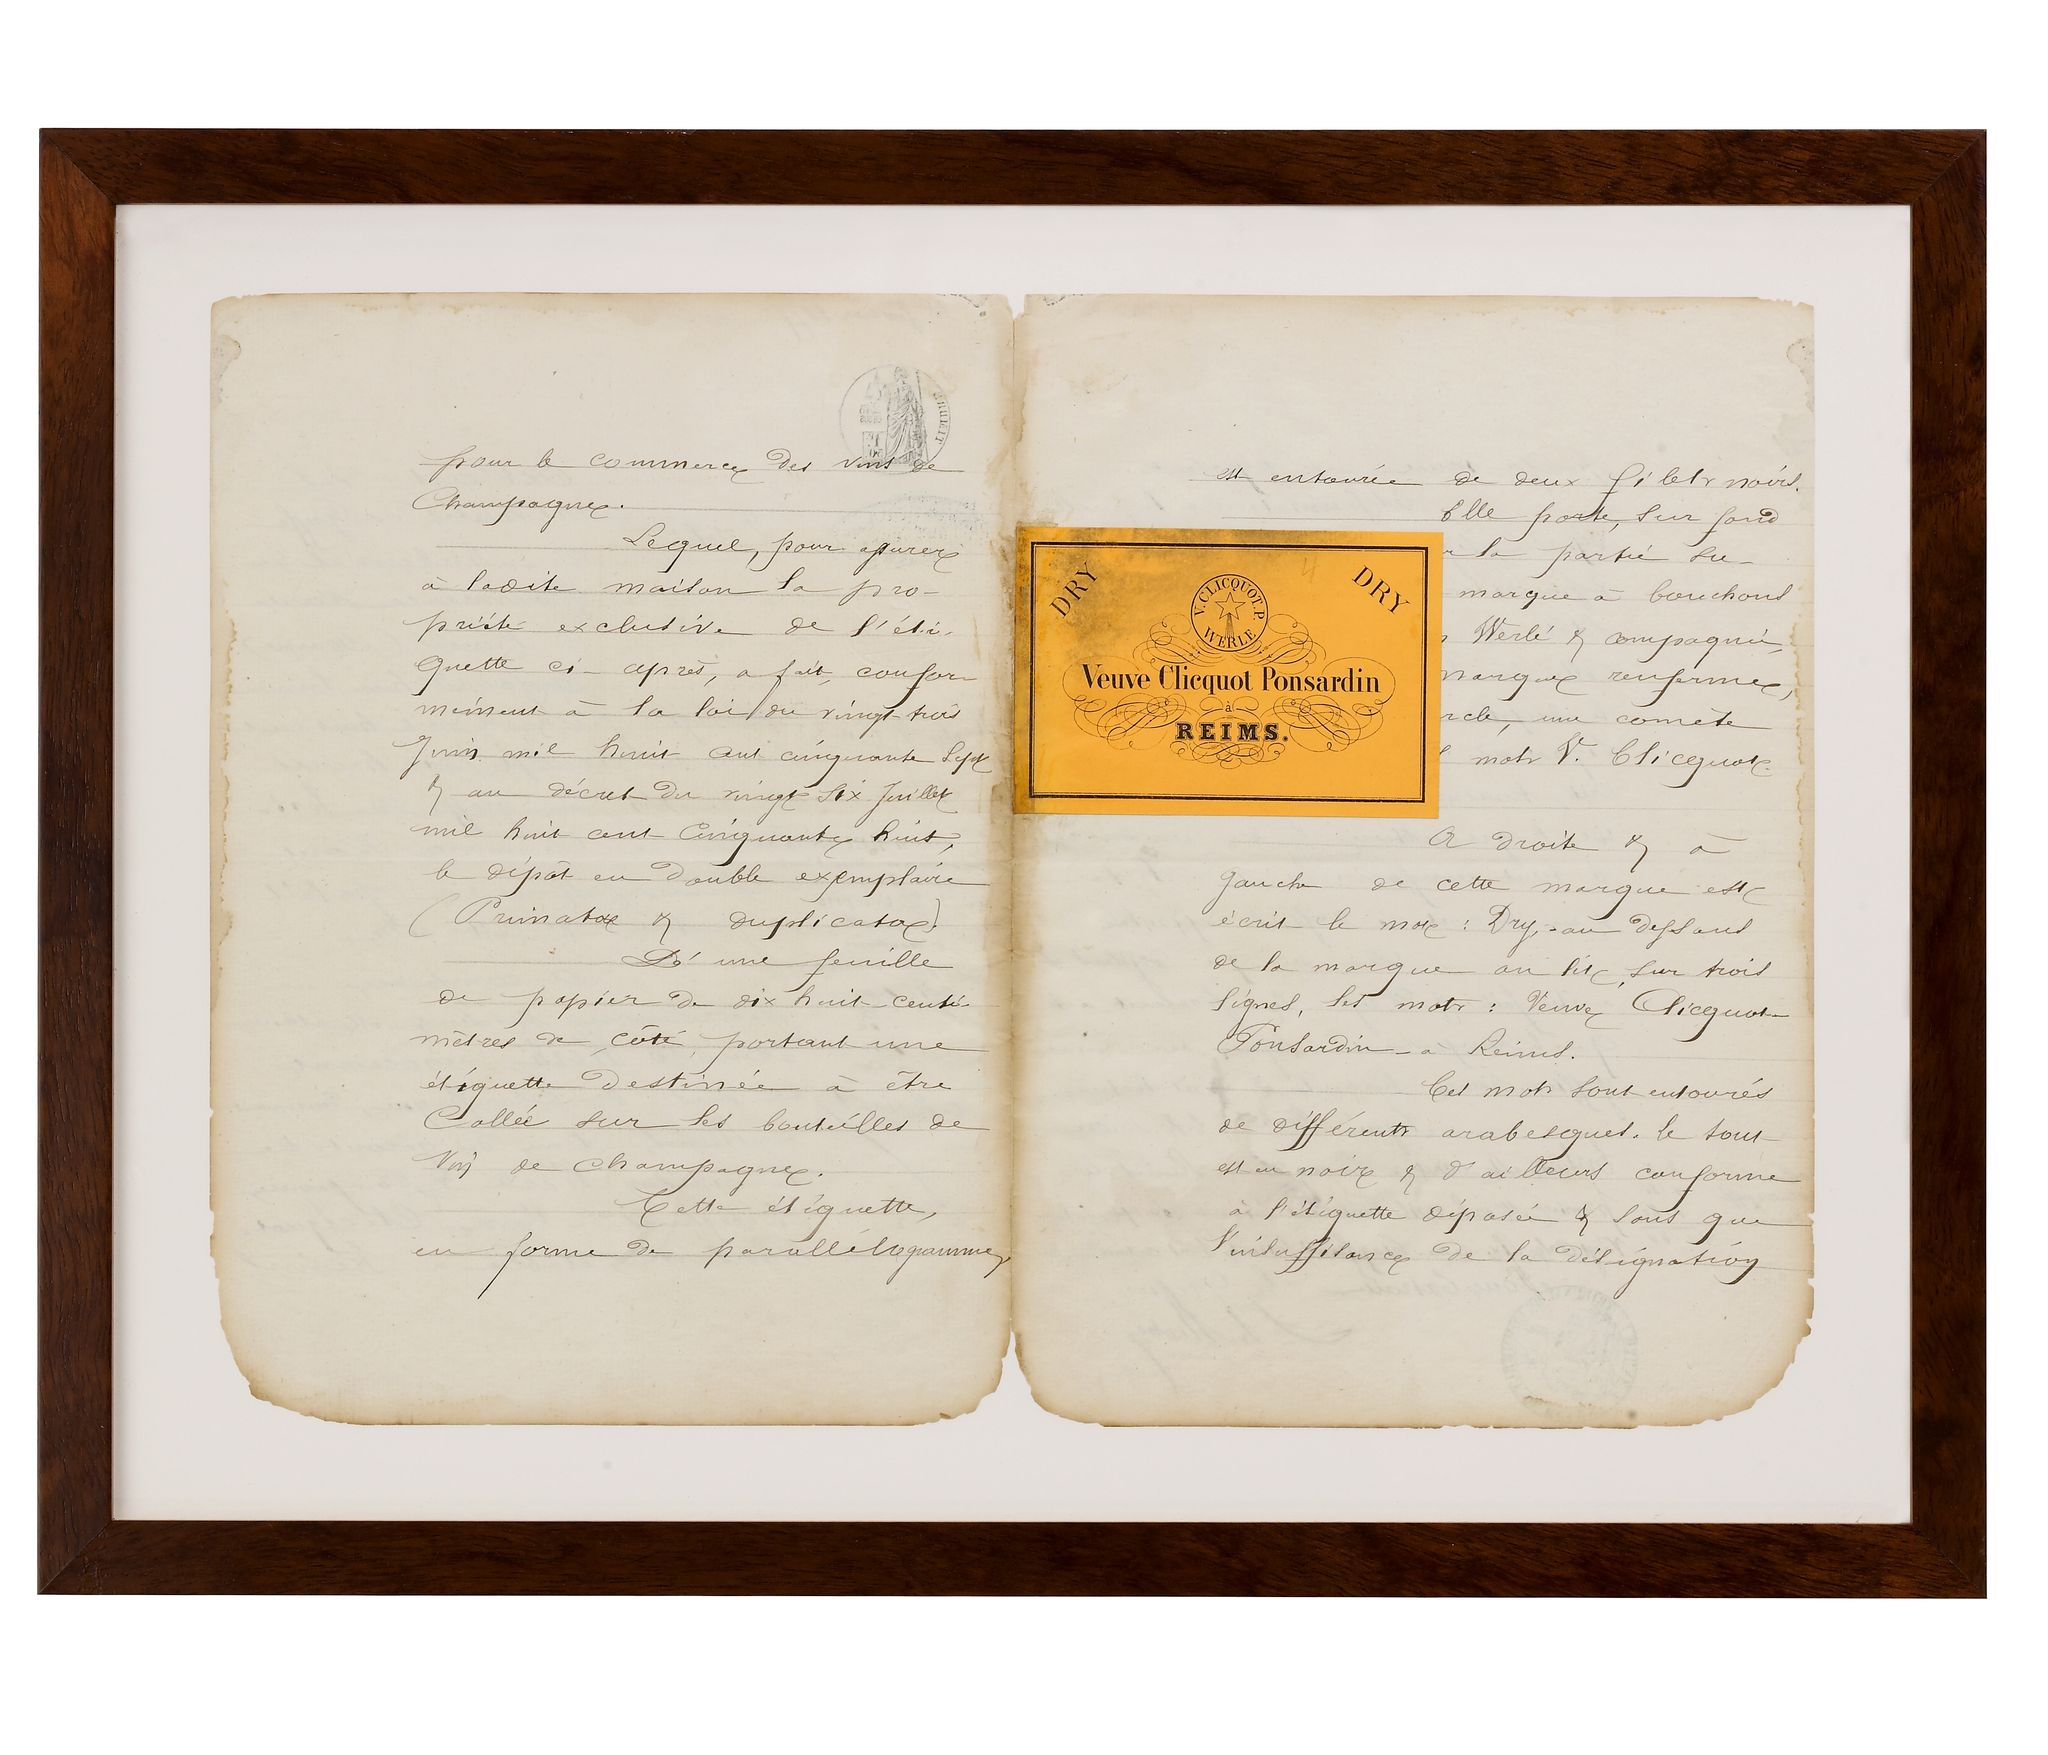 pour le commerce des vins de
Champagne.
Lequel, pour assurer
à ladite maison la pro-
priété exclusive de l'éti-
quette ci-après, a fait, confor-
mément à la loi du vingt-trois
Juin mil huit cent cinquante sept
& au décret du vingt six Juillet
mil huit cent cinquante huit,
le dépôt en double exemplaire
(Primata & duplicata).
D'une feuille
de papier de dix huit centi-
mètres de côté, portant une
étiquette destinée à être
Collée sur les bouteilles de
Vin de champagne.
Cette étiquette,
en forme de parallélogramme,
est entourée de deux filets noirs.
Elle porte, sur fond
la partie su-
marque à bouchons
Werlé & compagnie,
marque renferme,
une comète
mots V. Clicquot.
DRY
DRY
V. CLICQUOT. P.
WERLE
Veuve Clicquot Ponsardin
à
REIMS.
A droite & à
gauche de cette marque est
écrit le mot : Dry, au dessous
de la marque on lit, sur trois
lignes, les mots : Veuve Clicquot-
Ponsardin - à Reims.
Ces mots sont entourés
de différents arabesques. le tout
est en noir & d'ailleurs conforme
à l'étiquette déposée & sans que
l'insuffisance de la désignation